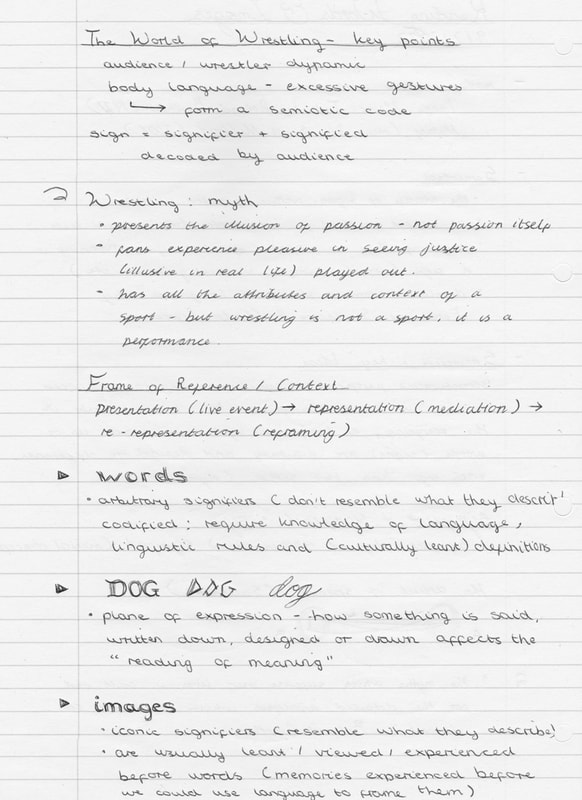 The World of Wrestling - key points
audience / wrestler dynamic
body language - excessive gestures
↳ form a semiotic code
sign = signifier + signified
decoded by audience
Wrestling : myth
• presents the illusion of passion - not passion itself
• fans experience pleasure in seeing justice
(illusive in real life) played out.
• has all the attributes and context of a
sport - but wrestling is not a sport, it is a
performance.
Frame of Reference / Context
presentation (live event) → representation (mediation) →
re-representation (reframing)
▶ words
• arbitrary signifiers (don't resemble what they
codified : require knowledge of language,
linguistic rules and (culturally leant) definitions
▶ DOG DOG dog
• plane of expression - how something is said,
written down, designed or drawn affects the
"reading of meaning"
▶ images
• iconic signifiers (resemble what they describe)
• are usually leant / viewed / experienced
before words (memories experienced before
we could use language to frame them)